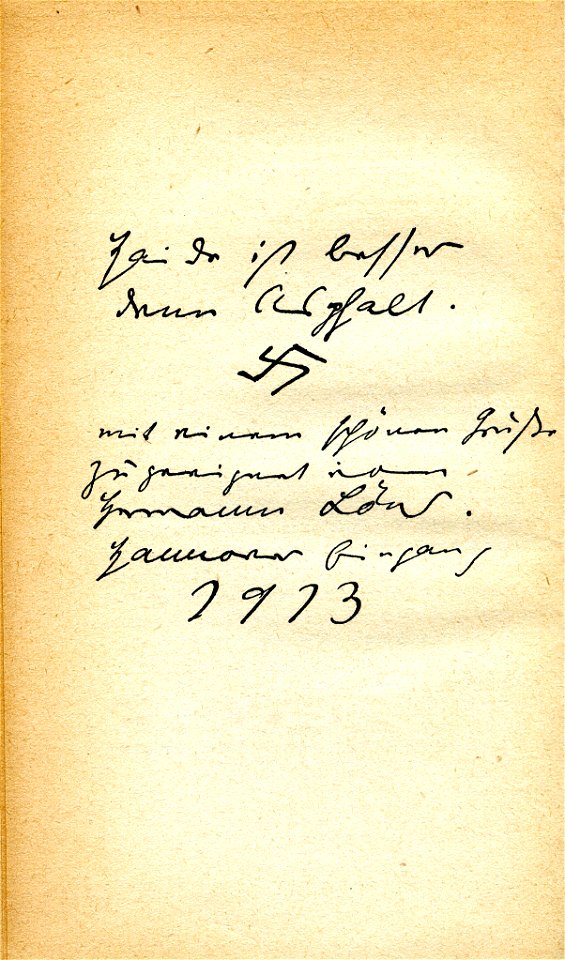 Haide ist besser
denn Asphalt.
卐
mit einem schönen Gruße
zugeeignet von
Hermann Löns.
Hannover Eingang
1913